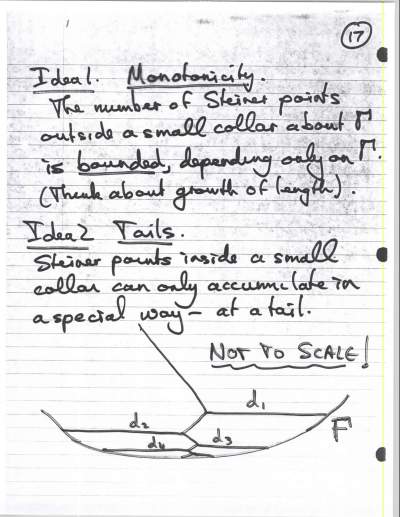 17
Idea 1. Monotonicity.
The number of Steiner points
outside a small collar about Γ
is bounded, depending only on Γ.
(Think about growth of length).
Idea 2 Tails.
Steiner points inside a small
collar can only accumulate in
a special way – at a tail.
NOT TO SCALE!
d₁
d₂
Γ
d₄ d₃